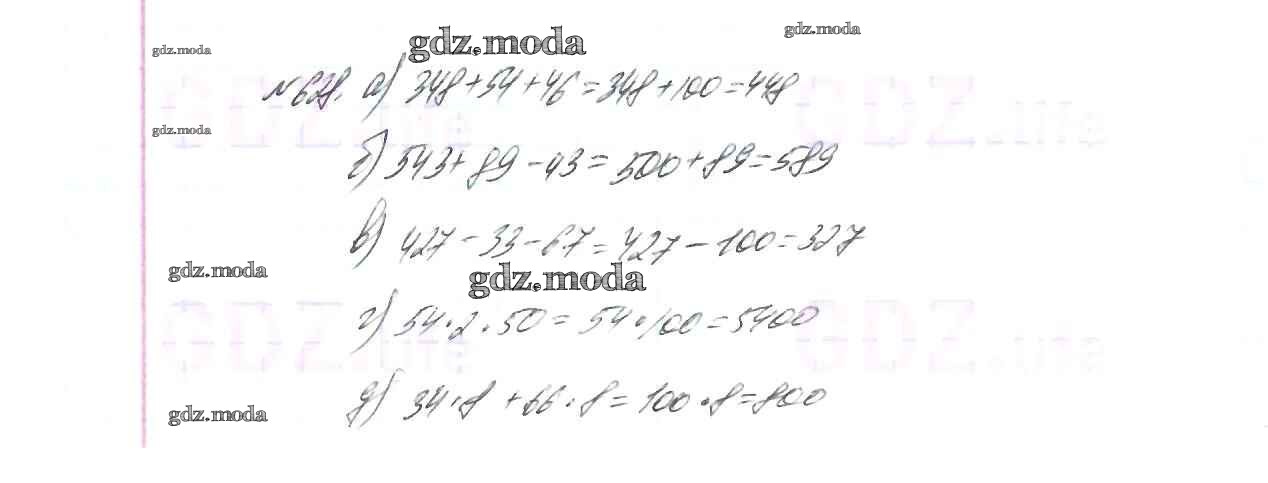 gdz.moda
gdz.moda
gdz.moda
№628. а) 348+54+46=348+100=448
GDZ.life GDZ.life
gdz.moda
б) 543+89-43=500+89=589
в) 427-33-67=427-100=327
gdz.moda
gdz.moda
г) 54·2·50=54·100=5400
GDZ.life GDZ.life
д) 34·8+66·8=100·8=800
gdz.moda